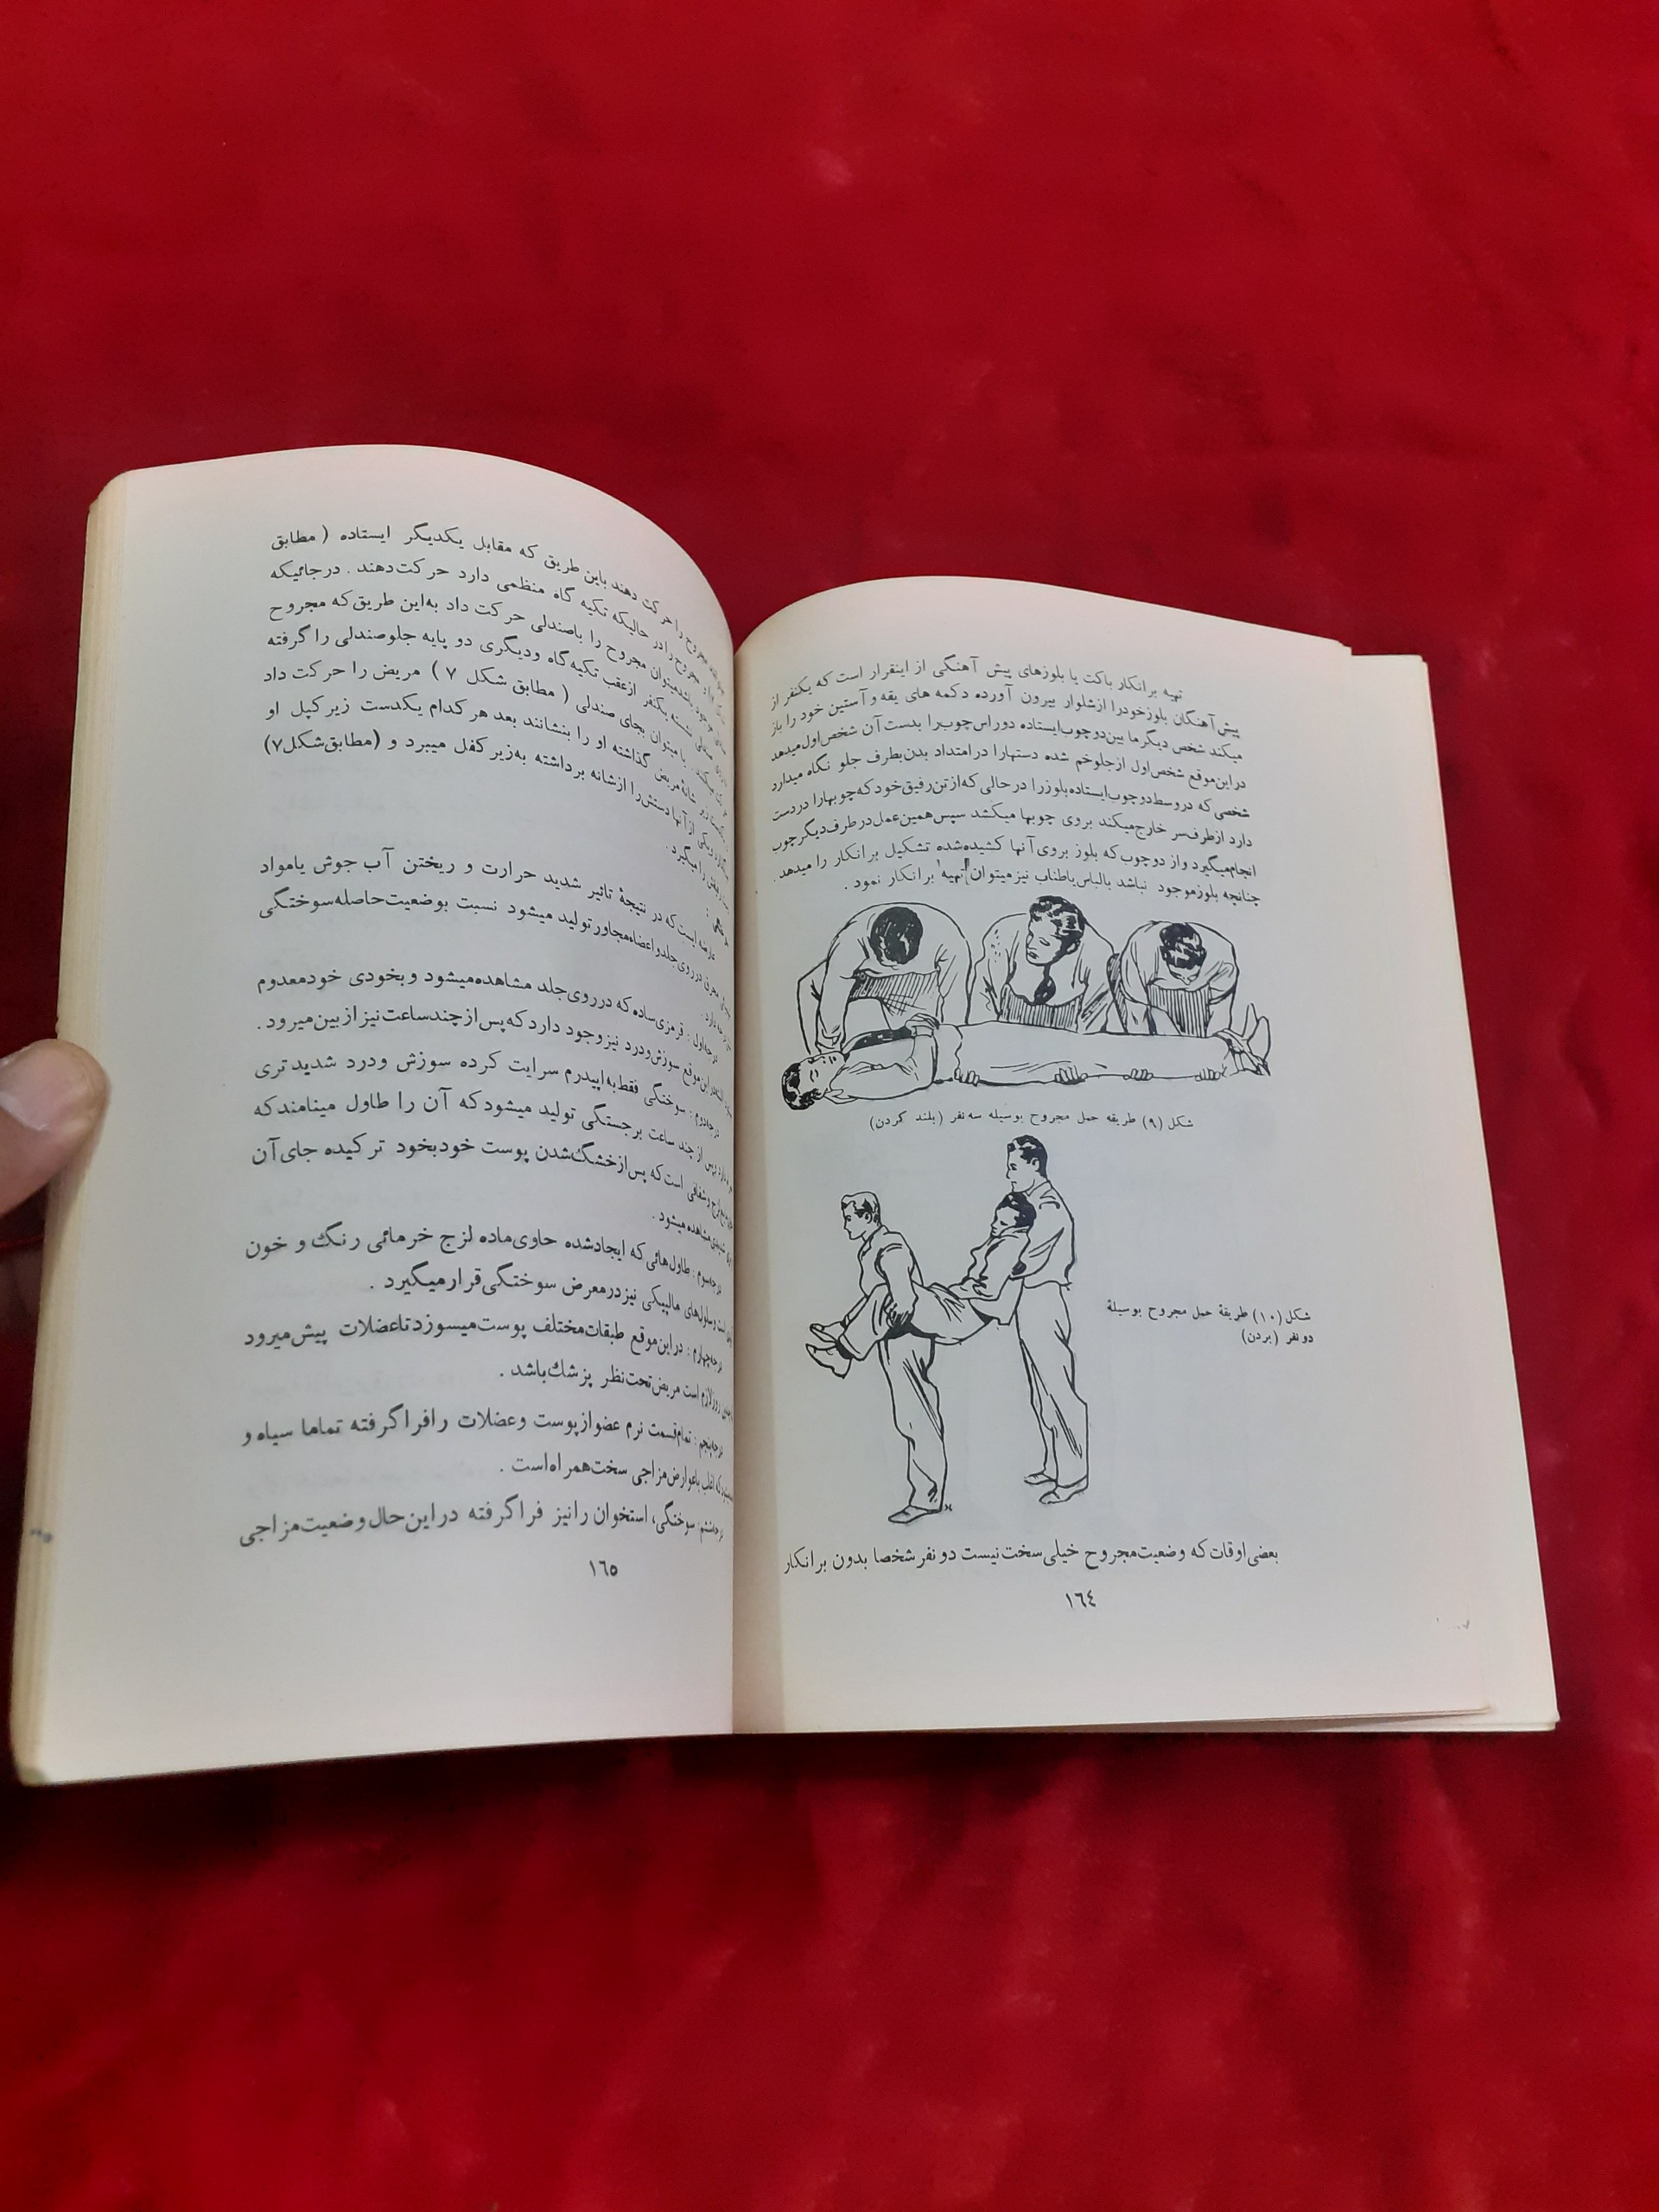 تهیه برانکار باکت یا بلوزهای پیش آهنگی از اینقرار است که یکنفر از
پیش‌آهنگان بلوزخودرا ازشلوار بیرون آورده دکمه های یقه و آستین خود را باز
میکند شخص دیگرما بین‌دوچوب‌ایستاده دوراس‌چوب‌را بدست آن شخص‌اول‌میدهد
دراین‌موقع شخص‌اول ازجلوخم شده دستهارا درامتداد بدن‌بطرف جلو نگاه میدارد
شخصی‌که دروسط‌دوچوب‌ایستاده‌بلوزرا درحالی که‌ازتن‌رفیق‌خود‌که‌چوبهارا دردست
دارد ازطرف‌سر خارج‌میکند بروی چوبها میکشد سپس‌همین‌عمل‌درطرف‌دیگرچوب
انجام‌میگیرد واز دوچوب‌که بلوز بروی‌آنها کشیده‌شده تشکیل برانکار را میدهد.
چنانچه بلوزموجود نباشد بالباس‌یاطناب نیزمیتوان تهیه برانکار نمود.
شکل (۹) طریقه حمل مجروح بوسیله سه‌نفر (بلند کردن)
شکل (۱۰) طریقهٔ حمل مجروح بوسیلهٔ
دو نفر (بردن)
بعضی‌اوقات‌که وضعیت‌مجروح خیلی‌سخت‌نیست دو نفر شخصا بدون برانکار
١٦٤
مجروح را حرکت دهند باین طریق که مقابل یکدیگر ایستاده (مطابق
مجروح‌رادر حالیکه تکیه گاه منظمی دارد حرکت‌دهند. درجائیکه
باشدمیتوان مجروح را باصندلی حرکت داد به‌این طریق‌که مجروح
نشسته یکنفر ازعقب تکیه‌گاه ودیگری دو پایه جلوصندلی را گرفته
یا میتوان بجای صندلی (مطابق شکل ۷) مریض را حرکت داد
شانهٔ مریض گذاشته او را بنشانند بعد هرکدام یکدست زیرکپل او
ازآنها دستش‌را ازشانه برداشته به‌زیرکفل میبرد و (مطابق‌شکل۷)
را میگیرد.
عارضه ایست‌که در نتیجهٔ تاثیر شدید حرارت و ریختن آب جوش یامواد
درروی‌جلدواعضاءمجاورتولید میشود نسبت بوضعیت‌حاصله‌سوختگی
دارد.
درجه‌اول: قرمزی‌ساده که درروی‌جلد مشاهده‌میشود وبخودی خودمعدوم
این‌موقع سوزش‌ودرد نیزوجود دارد که‌پس‌از‌چند‌ساعت‌نیز‌از‌بین‌میرود.
درجه‌دوم: سوختگی فقط‌به‌اپیدرم سرایت کرده سوزش ودرد شدیدتری
پس از چند ساعت برجستگی تولید میشود‌که آن را طاول مینامند‌که
است‌که پس‌ازخشک‌شدن پوست خودبخود ترکیده جای‌آن
مشاهده‌میشود.
درجه‌سوم: طاول‌هائی که ایجادشده حاوی‌ماده لزج خرمائی رنگ و خون
است وسلول‌های مالپیکی نیزدرمعرض سوختگی‌قرارمیگیرد.
درجه‌چهارم: دراین‌موقع طبقات‌مختلف پوست‌میسوزدتاعضلات پیش‌میرود
لازم است مریض‌تحت‌نظر پزشك‌باشد.
درجه‌پنجم: تمام‌قسمت نرم عضوازپوست وعضلات رافراگرفته تماما سیاه و
که اغلب باعوارض‌مزاجی سخت‌همراه‌است.
درجه‌ششم: سوختگی، استخوان رانیز فراگرفته دراین‌حال‌وضعیت‌مزاجی
١٦٥